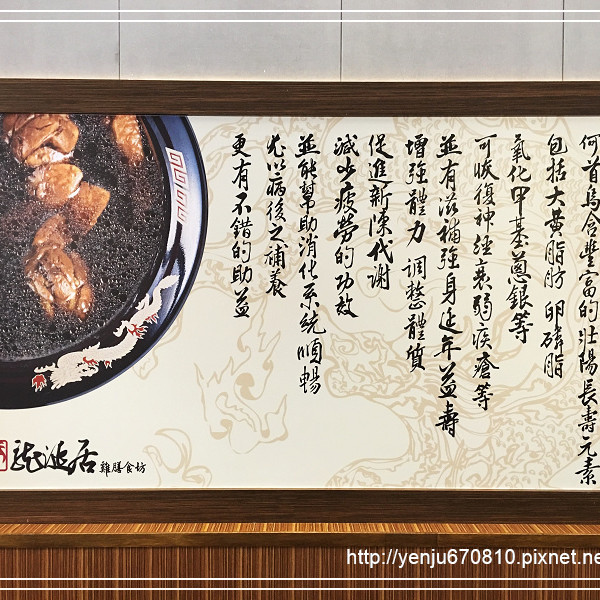 何首烏含豐富的壯陽長壽元素
包括大黃脂肪 卵磷脂
氧化甲基蒽銀等
可恢復神經衰弱疾瘡等
並有滋補強身延年益壽
增強體力 調整體質
促進新陳代謝
減少疲勞的功效
並能幫助消化系統順暢
尤以病後之補養
更有不錯的助益
龍涎居
雞膳食坊
http://yenju670810.pixnet.ne